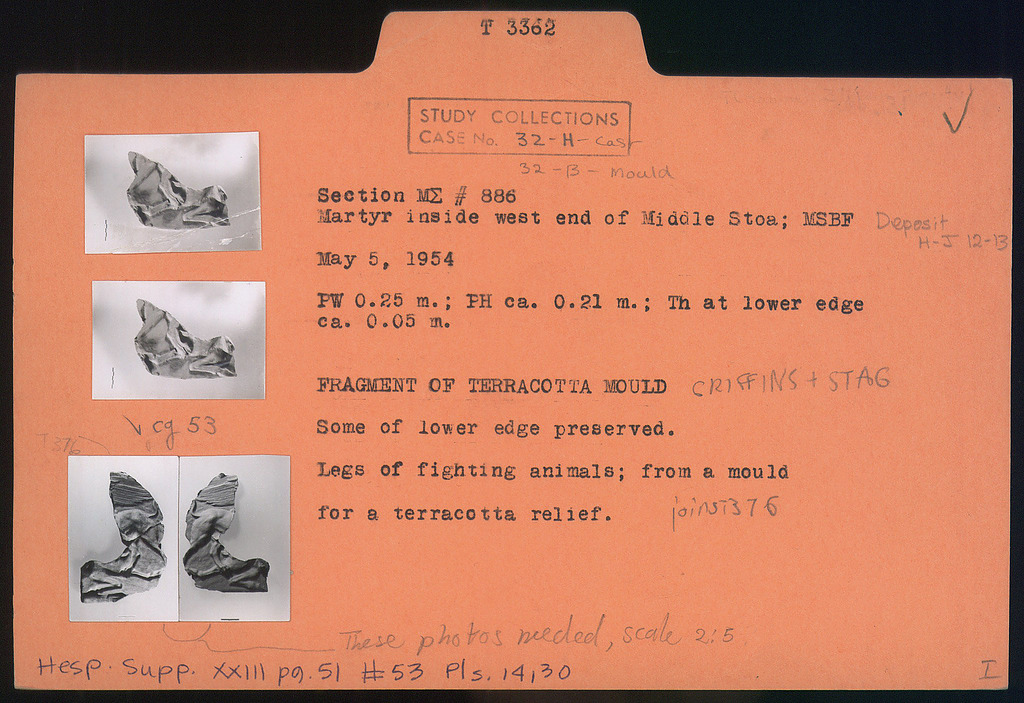 T 3362
STUDY COLLECTIONS
CASE No. 32-H-Cast
32-B-Mould
Section MΣ # 886
Martyr inside west end of Middle Stoa; MSBF
Deposit
H-J 12-13
May 5, 1954
PW 0.25 m.; PH ca. 0.21 m.; Th at lower edge
ca. 0.05 m.
FRAGMENT OF TERRACOTTA MOULD GRIFFINS + STAG
Some of lower edge preserved.
Legs of fighting animals; from a mould
for a terracotta relief. joins T376
√ cg 53
T 376
These photos needed, scale 2:5
Hesp. Supp. XXIII pg. 51 #53 Pls. 14,30
I